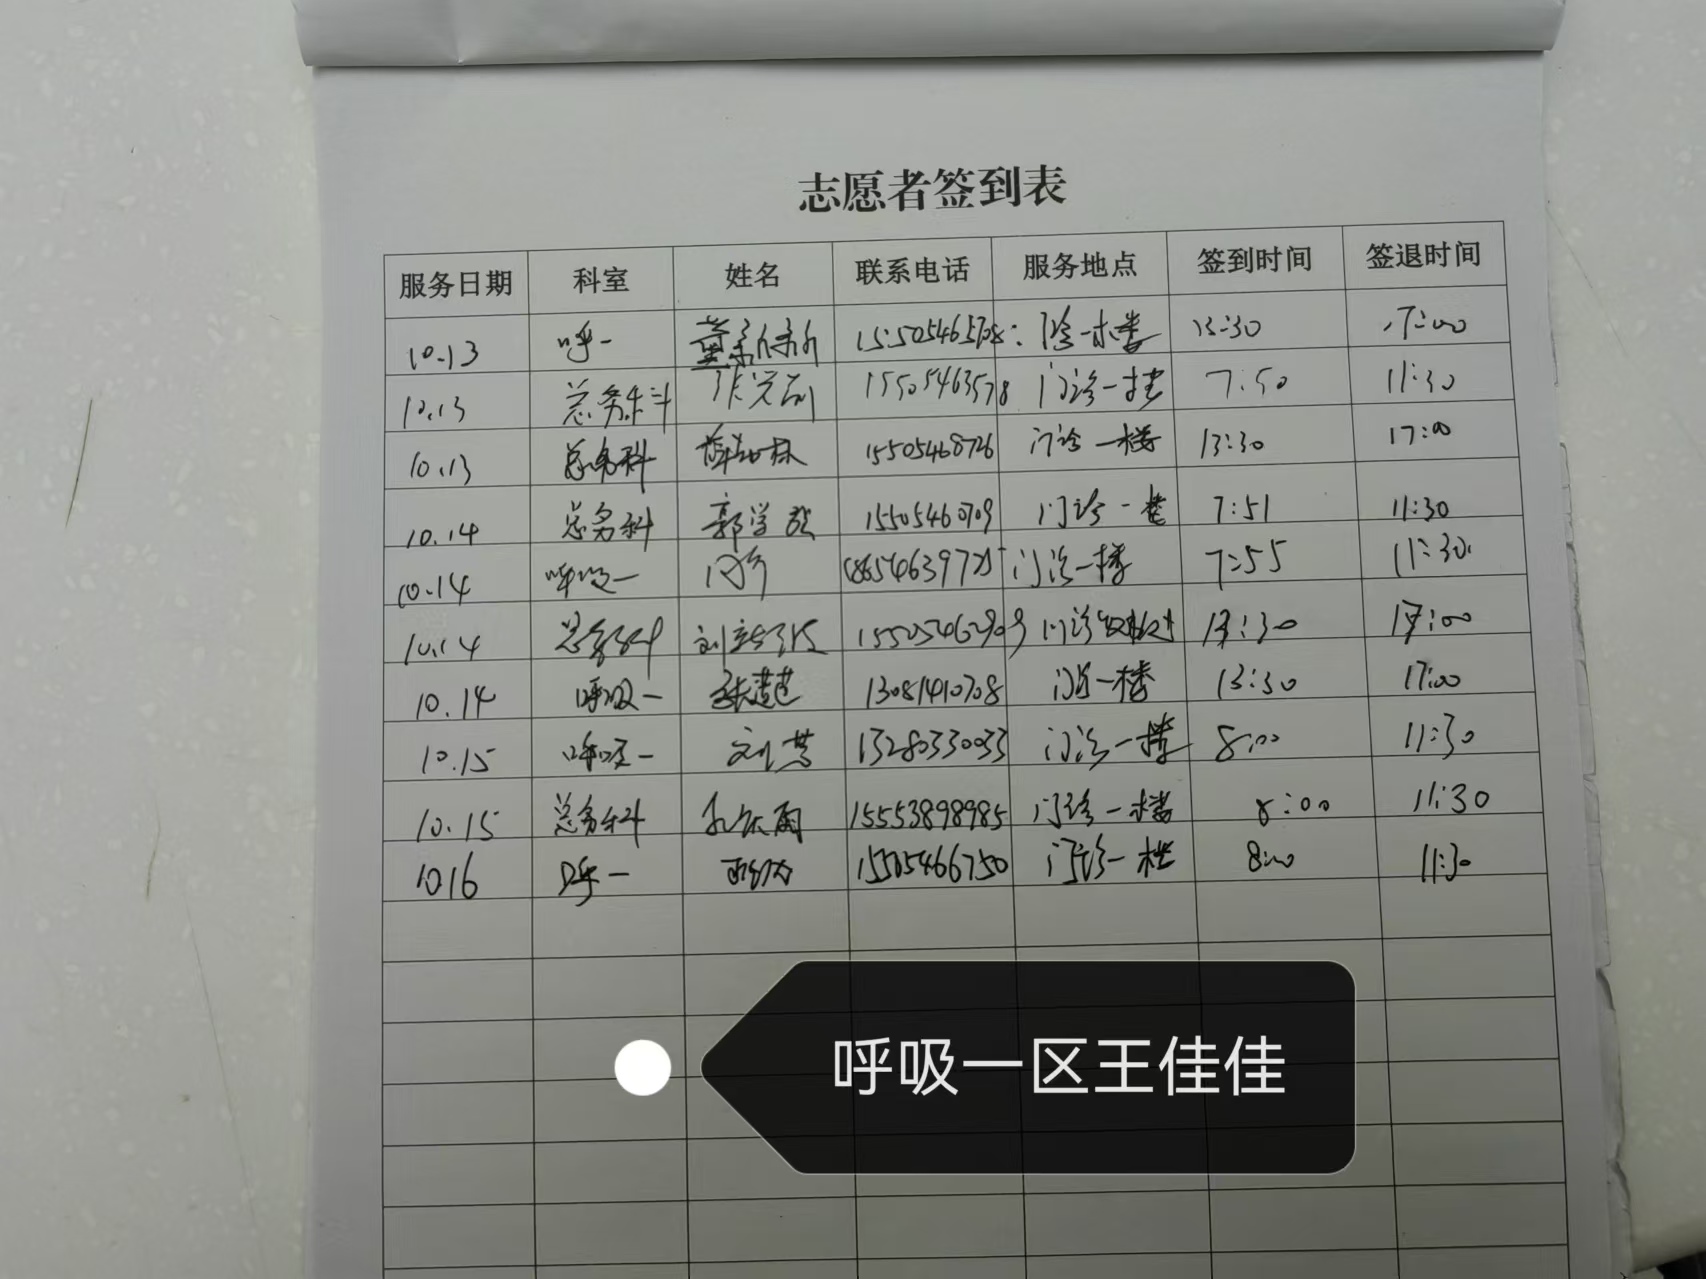 志愿者签到表
服务日期 科室 姓名 联系电话 服务地点 签到时间 签退时间
10.13 呼一 董 门诊一楼 13:30 17:00
10.13 总务科 15505463578 门诊一楼 7:50 11:30
10.13 总务科 15505468726 门诊一楼 13:30 17:00
10.14 总务科 郭学 15505460709 门诊一楼 7:51 11:30
10.14 呼吸一 门诊一楼 7:55 11:30
10.14 总务科 刘 门诊 17:00
10.14 呼吸一 张 13081410708 一楼 13:30 17:00
10.15 呼吸一 刘慧 13280330033 门诊一楼 8:00 11:30
10.15 总务科 孔庆雨 15553898985 门诊一楼 8:00 11:30
1016 呼一 15505466750 门诊一楼 8:00 11:30
呼吸一区王佳佳